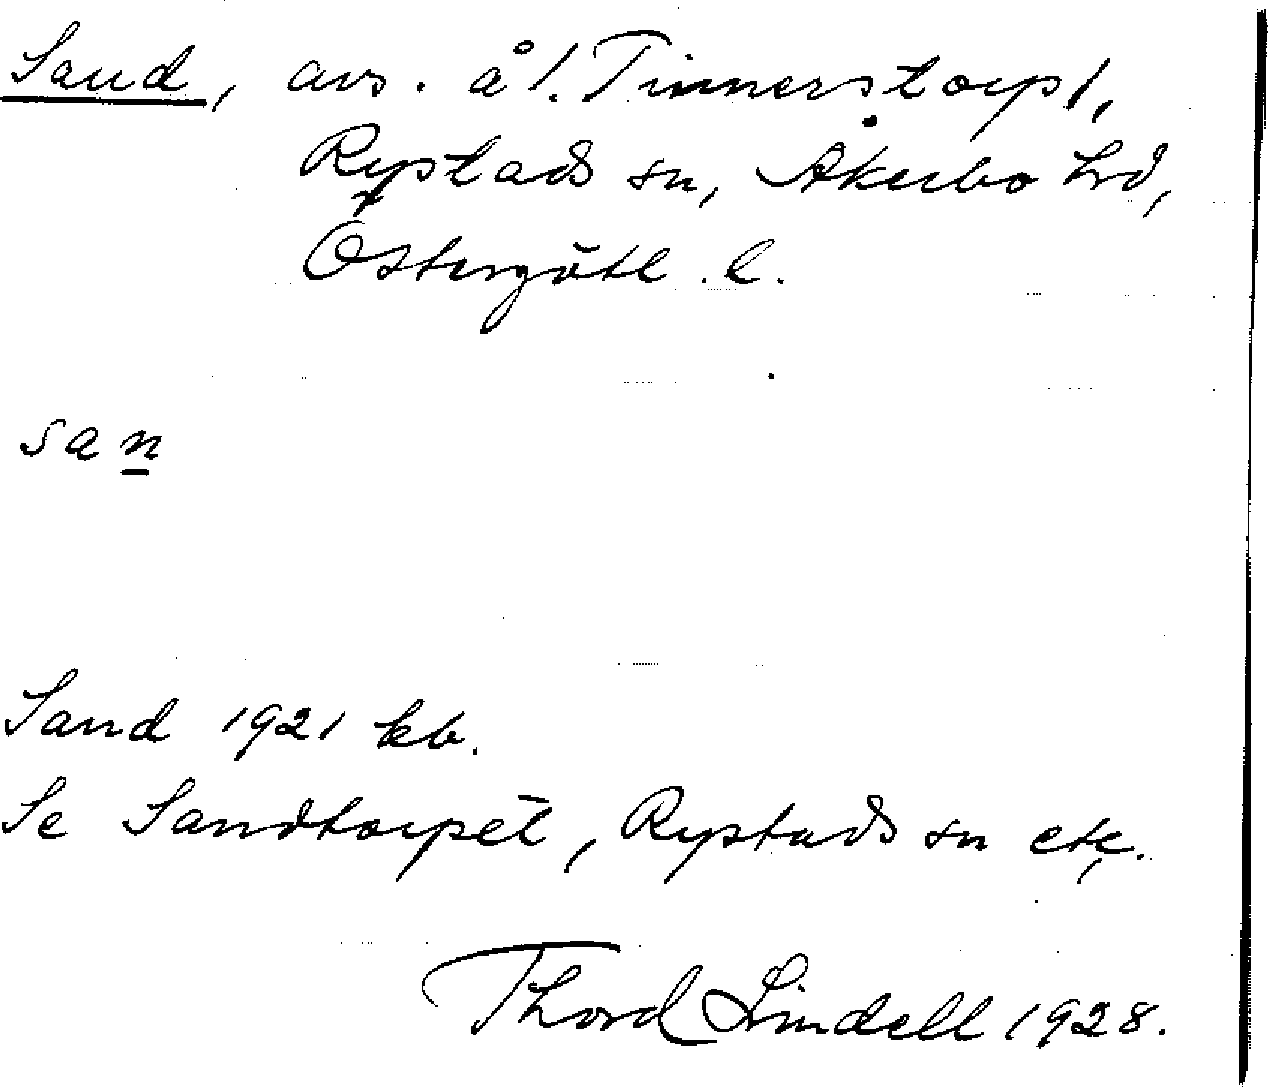 Sand, avs. å 1. Tinnerstorp 1,
Rystads sn, Åkerbo hrd,
Östergötl. l.
san
Sand 1921 kb.
Se Sandtorpet, Rystads sn etc.
Thord Lindell 1928.